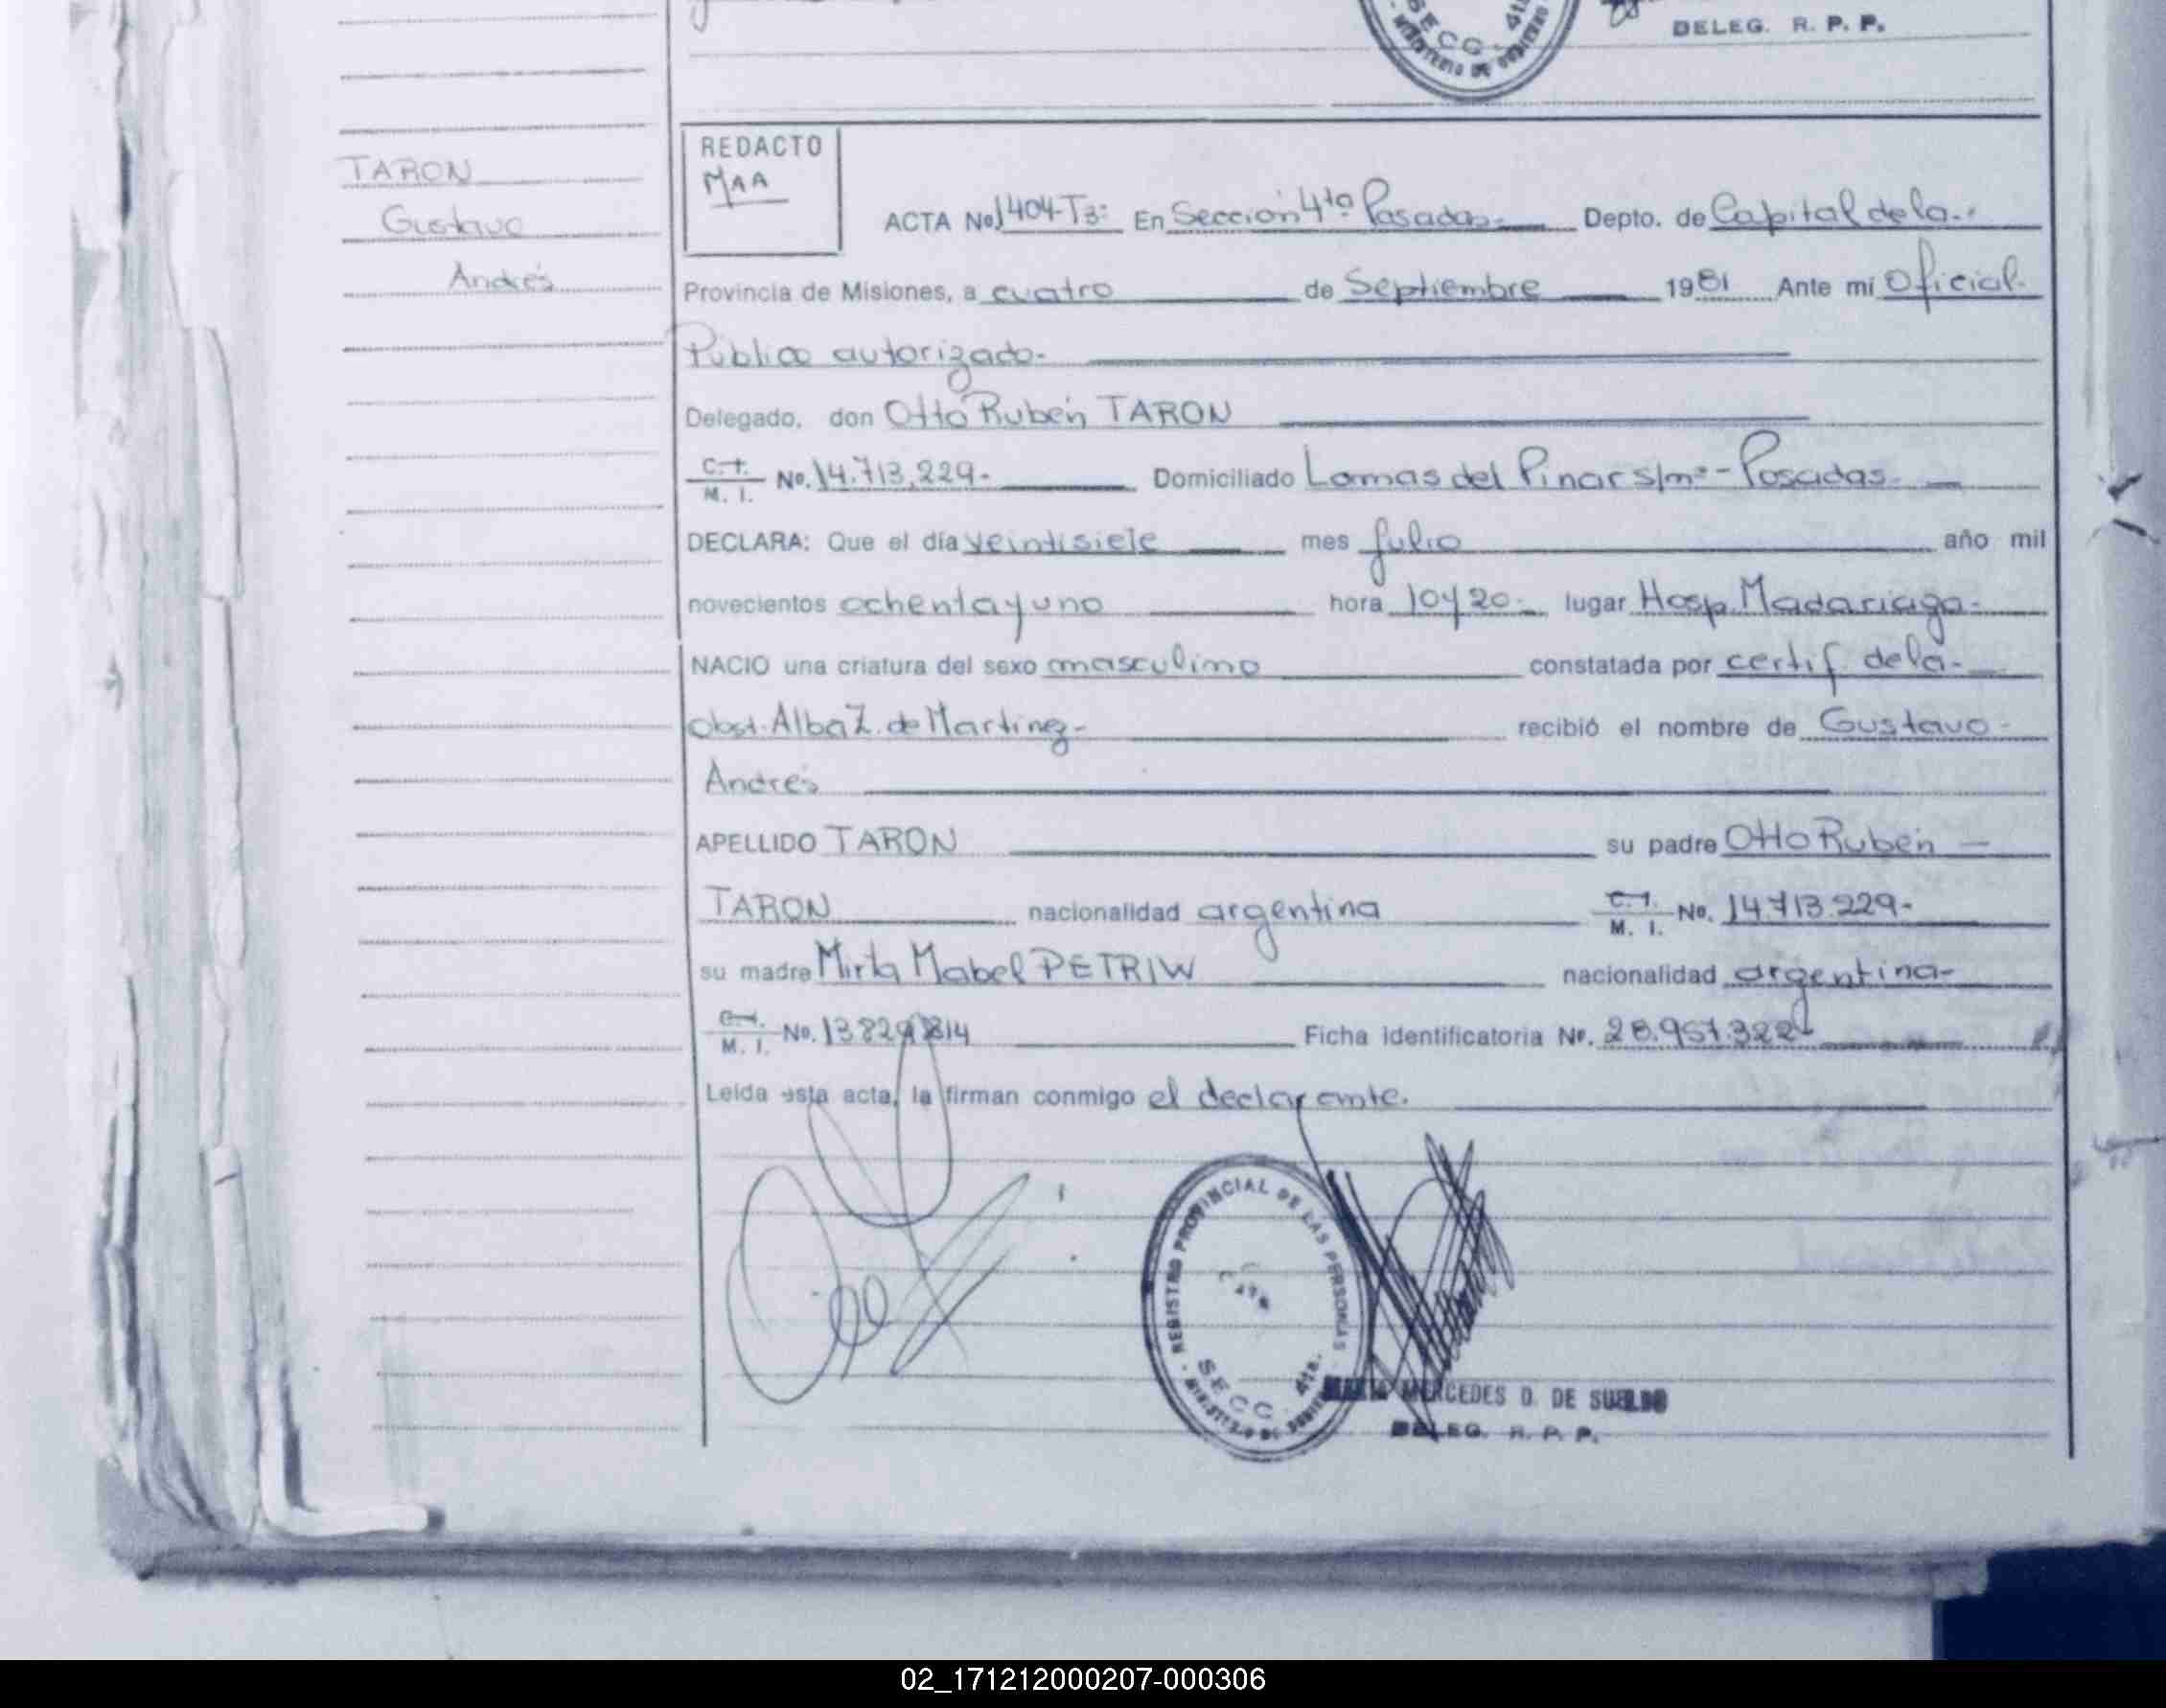 SECC 4ta.
MINISTERIO DE GOBIERNO
DELEG. R. P. P.
REDACTO
MAA
TARON
Gustavo
Andrés
ACTA No 1404-T3: En Sección 4ta Posadas- Depto. de Capital de la-
Provincia de Misiones, a cuatro de Septiembre 1981 Ante mi Oficial-
Público autorizado-
Delegado, don Otto Rubén TARON
C.I. M. I. No. 14.713.229- Domiciliado Lomas del Pinar s/nº - Posadas-
DECLARA: Que el día veintisiete mes Julio año mil
novecientos ochenta y uno hora 10y20- lugar Hosp. Madariaga-
NACIO una criatura del sexo masculino constatada por certif de la-
Obst. Alba Z. de Martinez- recibió el nombre de Gustavo-
Andrés
APELLIDO TARON su padre Otto Rubén
TARON nacionalidad argentina C.I. M. I. No. 14.713.229-
su madre Mirta Mabel PETRIW nacionalidad argentina-
C.I. M. I. No. 13.829.814 Ficha Identificatoria No. 28.957.322
Leída esta acta, la firman conmigo el declarante.
REGISTRO PROVINCIAL DE LAS PERSONAS
SECC. 4ta.
MINISTERIO DE GOBIERNO
MARIA MERCEDES D. DE SUELDO
DELEG. R. P. P.
02_171212000207-000306